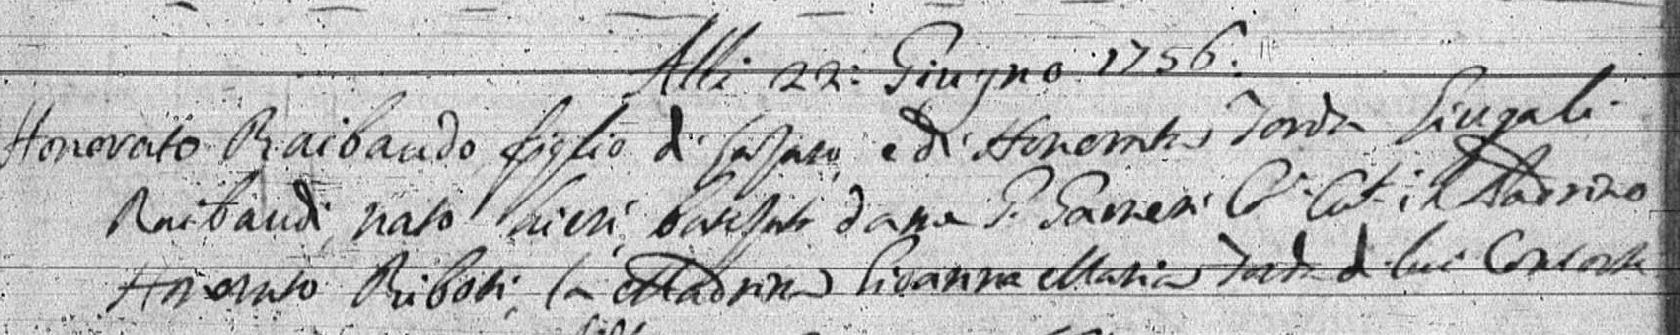 Alli 22: Giugno 1756.
Honorato Raibaudo figlio di Gasparo, e di Honorata Torda Giugali
Raibaudi, nato hieri, batezato da me P. Co: Cur: il Padrino
Honorato Riboti, la Madrina Gioanna Maria Torda di lui Consorte